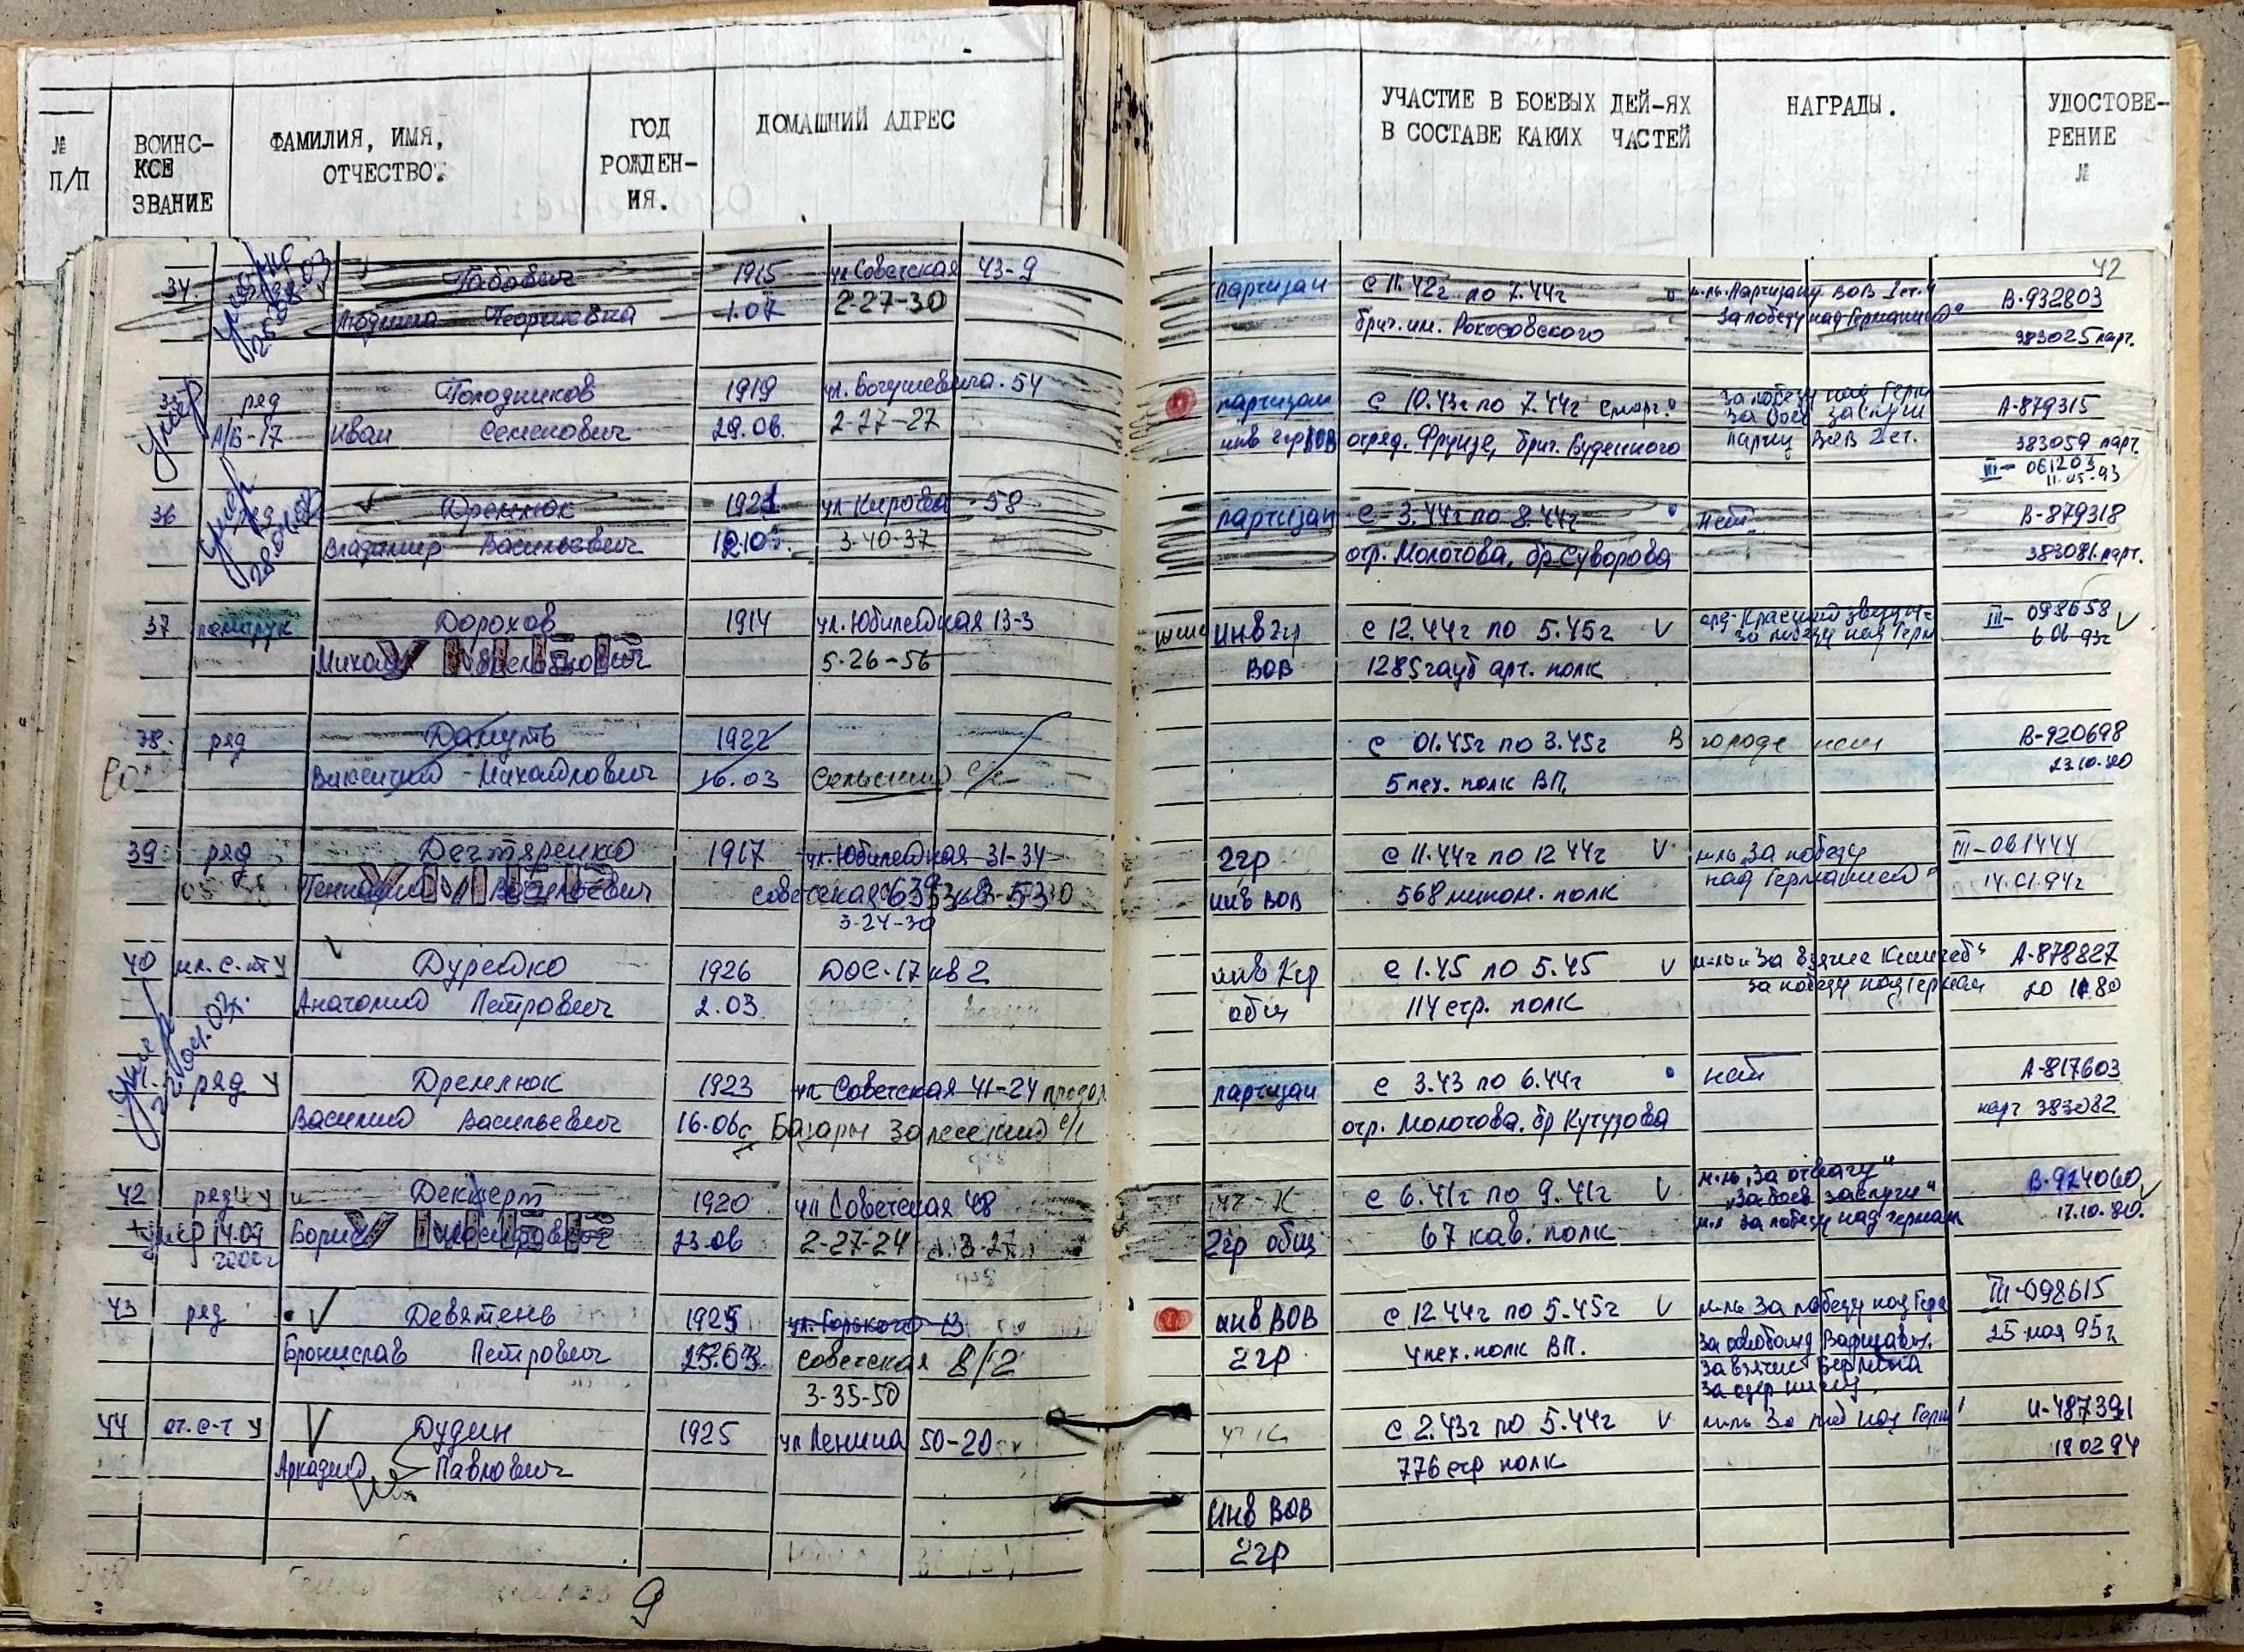 № П/П
ВОИНС-
КОЕ
ЗВАНИЕ
ФАМИЛИЯ, ИМЯ,
ОТЧЕСТВО.
ГОД
РОЖДЕН-
ИЯ.
ДОМАШНИЙ АДРЕС
УЧАСТИЕ В БОЕВЫХ ДЕЙ-ЯХ
В СОСТАВЕ КАКИХ ЧАСТЕЙ
НАГРАДЫ.
УДОСТОВЕ-
РЕНИЕ
№
42
34. 1915 ул Советская 43-9 партизан с 11.42г по 7.44г м-ль. Партизану ВОВ 2 ст. В-932803
Людмила Георгиевна 1.07 2-27-30 бриг. им. Рокосовского За победу над Германией"
983025 парт.
ряд Голодников 1919 ул. Богушевича. 54 партизан с 10.43г по 7.44г сморг. За победу над Герм А-879315
А/Б-17 Иван Семенович 29.06. 2-77-27 инв 2гр ВОВ отряд. Фрунзе, бриг. Буденного За боев заслуги
партиз ВОВ 2 ст. 383059 парт.
III- 061203
11.05-93
умер
36 ряд Дремлюк 1921 ул Кирова - 58 партизан с 3.44г по 8.44г нет В-879318
Владимир Васильевич 3-40-37 отр. Молотова, бр Суворова 383081. парт.
умер
37 Дорохов 1914 ул. Юбилейная 13-3 инв 2гр с 12.44г по 5.45г V орд. Красной звезды III- 098658 V
5-26-56 ВОВ 1285 гауб арт. полк за победу над Герм 6 06-93г
38. ряд Дамуть 1922 с 01.45г по 3.45г В городе нет В-920698
Викентий Михайлович 16.03 Сольский с/с 5 пех. полк ВП. 23.10.80
39 ряд Дегтяренко 1917 ул. Юбилейная 31-34 2гр с 11.44г по 12 44г V м-ль „За победу III-061444
Геннадий Васильевич инв ВОВ 568 мином. полк над Германией" 14.01.94г
3-24-30
40 мл. с-т У Дурейко 1926 ДОС-17 кв 2 с 1.45 по 5.45 V А-878827
Анатолий Петрович 2.03. общ 114 стр. полк за победу над Герман
ряд У Дремлюк 1923 ул Советская 41-24 партизан с 3.43 по 6.44г нет А-817603
Василий Васильевич 16.06 Базары Залесский с/с отр. Молотова, бр Кутузова парт 383082
42 ряд Декшерт 1920 ул Советская 48 с 6.41г по 9.41г V м-ль „За отвагу" В-924060
умер 14.07 Борис 23.06 2-27-24 2гр общ 67 кав. полк „За боев заслуги" 17.10.80.
м-л За победу над герман
43 ряд V Девятень 1925 ул. Горького 13 инв ВОВ с 12.44г по 5.45г V м-ль За победу над Герм III-098615
Бронислав Петрович Советская 8/2 2гр 4 пех. полк ВП. За освобожд Варшавы. 25 мая 95г
За взятие Берлина
3-35-50
44 ст. с-т У V Дудин 1925 ул Ленина 50-20 с 2.43г по 5.44г V м-ль За поб над Герм И-487391
Аркадий Павлович 776 стр полк 18 02 94
инв ВОВ
2гр
9